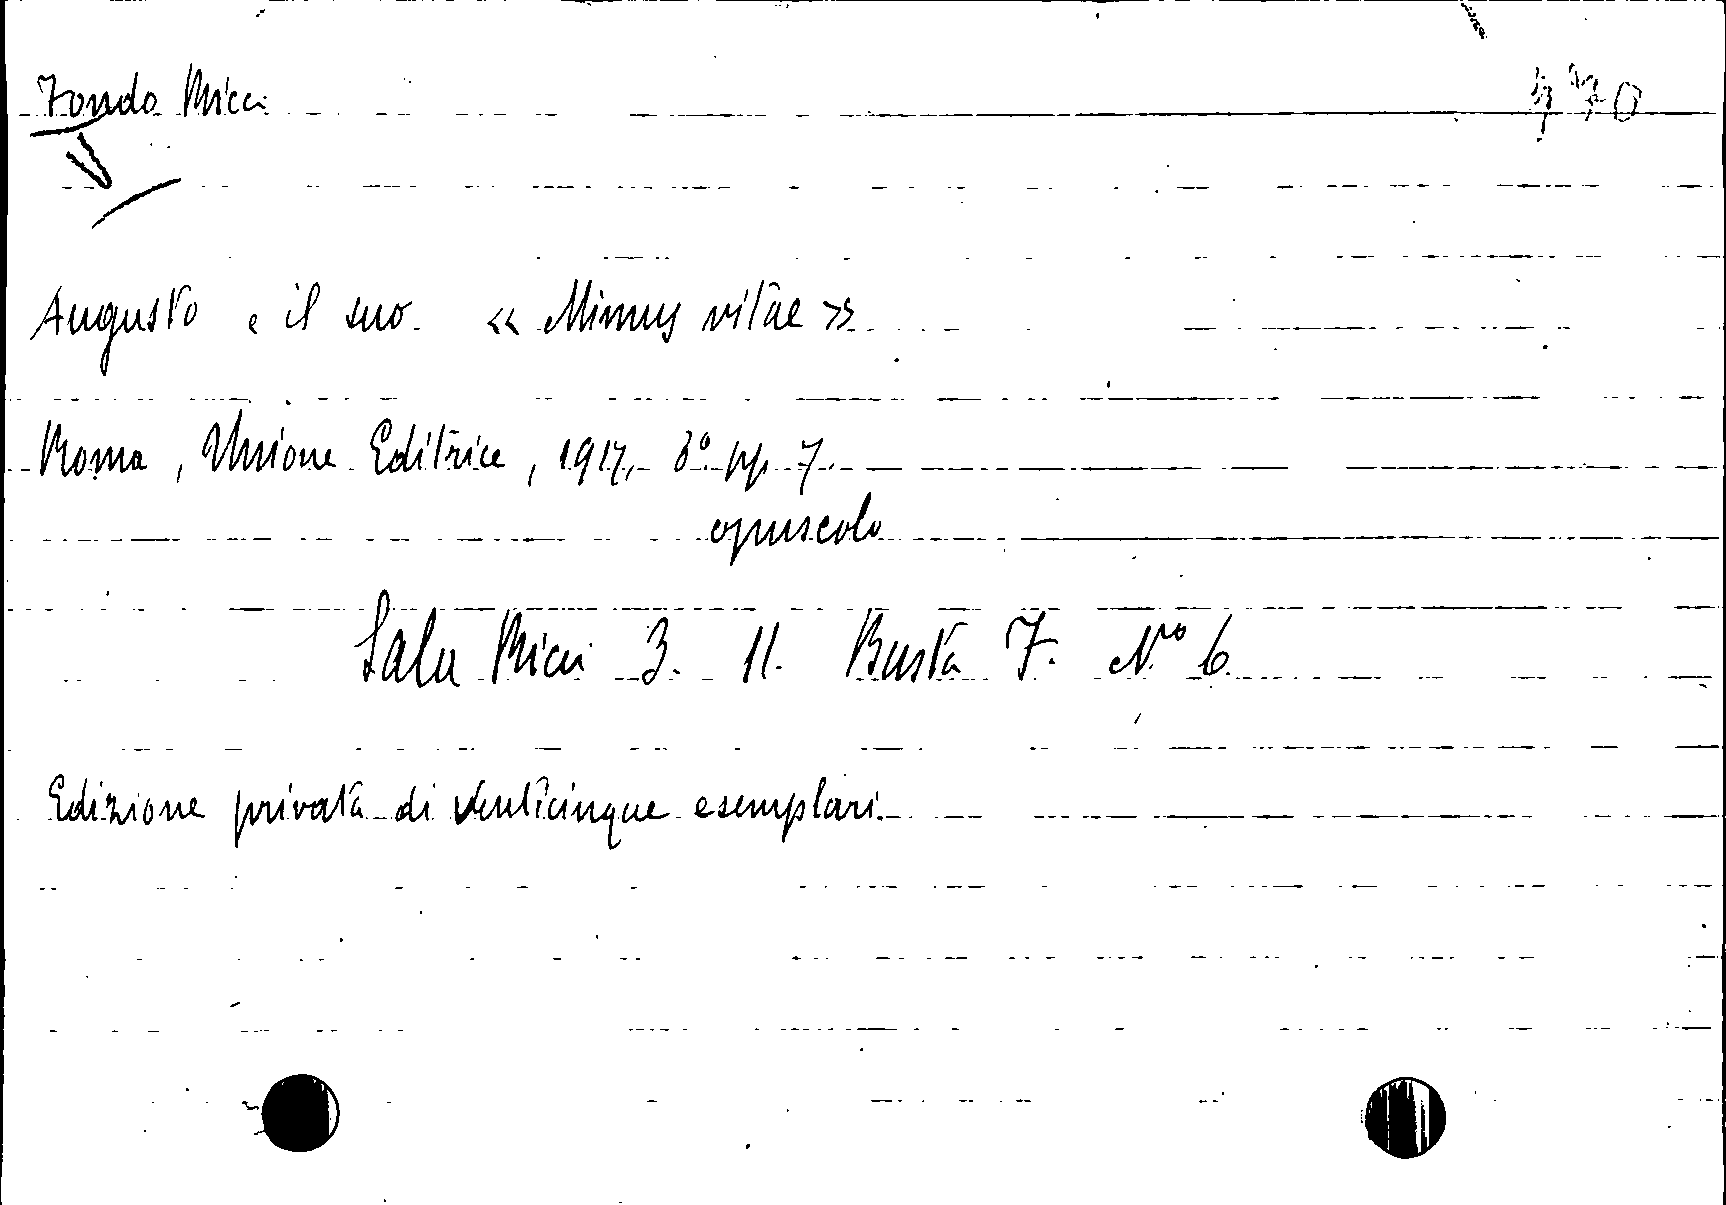 Fondo Ricci
Augusto e il suo « Mimus vitae »
Roma, Unione Editrice, 1917, 8° pp. 7.
opuscolo
Sala Ricci 3. 11. Busta 7. N.ro 6
Edizione privata di venticinque esemplari.